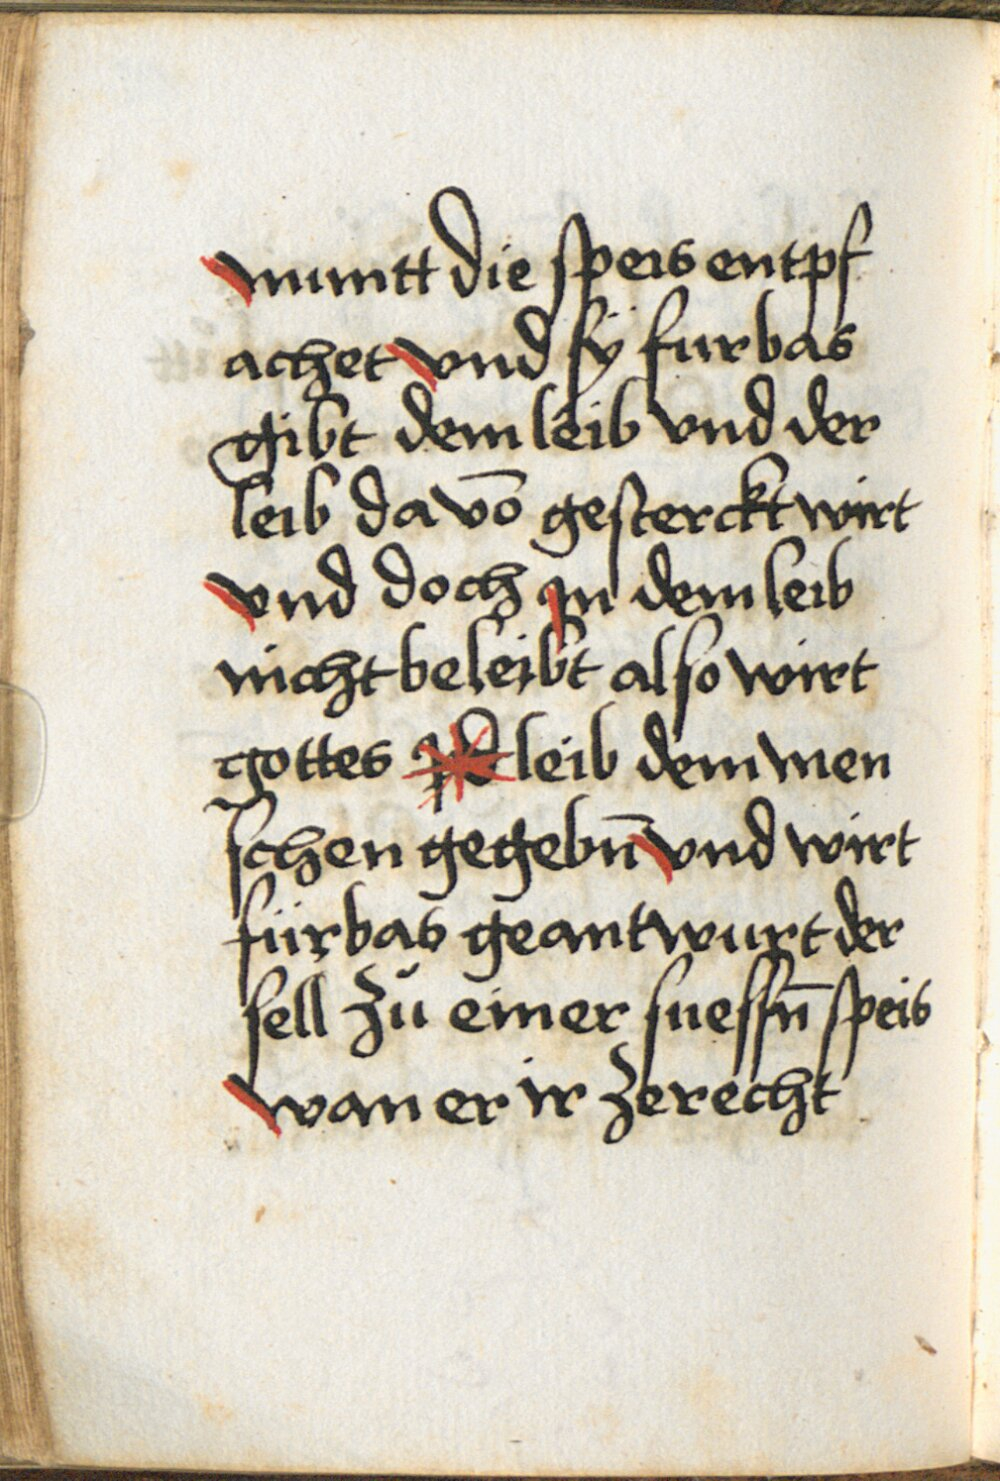 muntt die speis entpf
achet vnd sÿ furbas
gibt dem leib vnd der
leib da vō gesterckt wirt
vnd doch jn dem leib
nicht beleibt also wirt
gottes leib dem men
schen gegebn̄ vnd wirt
fürbas geantwurt der
sell zů einer suessn̄ speis
wan er ir zerecht